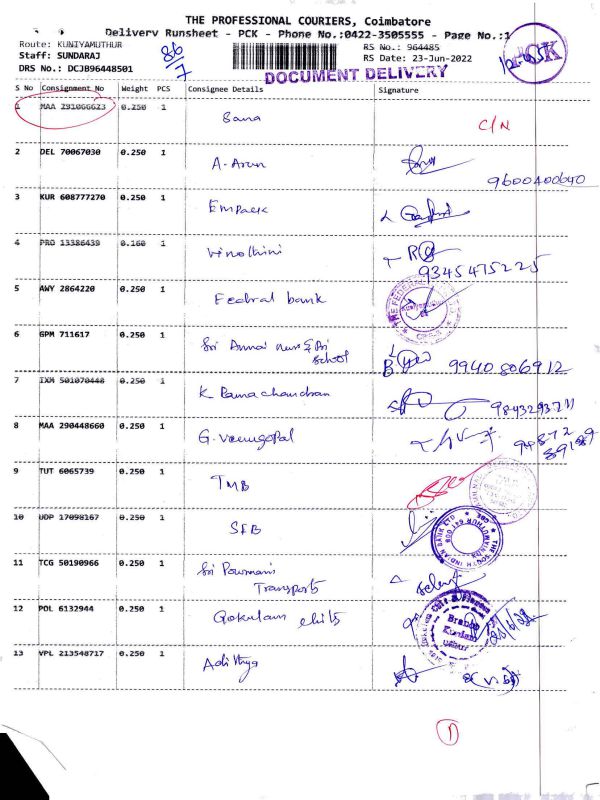 THE PROFESSIONAL COURIERS, Coimbatore
Delivery Runsheet - PCK - Phone No.:0422-3505555 - Page No.:1
Route: KUNIYAMUTHUR
RS No.: 964485
Staff: SUNDARAJ
RS Date: 23-Jun-2022
DRS No.: DCJB96448501
86/7
DOCUMENT DELIVERY
S No Consignment No Weight PCS Consignee Details Signature
1 MAA 291066623 0.250 1 Sana C/N
2 DEL 70067030 0.250 1 A. Arun
9600400640
3 KUR 608777270 0.250 1 Empack
4 PRO 13386439 0.160 1 Vinothini
9345475225
5 AWY 2864220 0.250 1 Fedral bank
6 GPM 711617 0.250 1 Sri Annai nurs & Pri
School
9940806912
7 IXM 501070448 0.250 1 K Ramachandran
8 MAA 290448660 0.250 1 G. Venugopal
9 TUT 6065739 0.250 1 TMB
10 UDP 17098167 0.250 1 SIB
THE SOUTH INDIAN BANK LTD
11 TCG 50190966 0.250 1 Sri Pournami
Transports
12 POL 6132944 0.250 1 Gokulam chits
23/6/22
13 VPL 213548717 0.250 1 Adithya
1